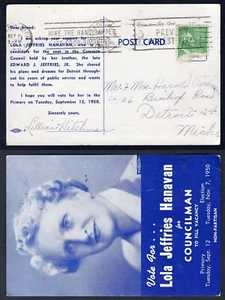 Dear Friend:
HIRE THE HANDICAPPED
LOLA JEFFRIES HANAVAN
candidate for the seat in the Common
Council held by her brother, the late
EDWARD J. JEFFRIES, JR. She shared
his plans and dreams for Detroit through-
out his years of public service and wants
to help fulfil them.
I hope you will vote for her in the
Primary on Tuesday, September 12, 1950.
Sincerely yours,
Lillian Hitchman
POST CARD
Mr. + Mrs. Harold
Bishop Road
Detroit 24
Mich.
Vote For . . .
Lola Jeffries Hanavan
for
COUNCILMAN
TO FILL VACANCY
Primary
Tuesday, Sept. 12
Election
Tuesday, Nov. 7, 1950
NON-PARTISAN